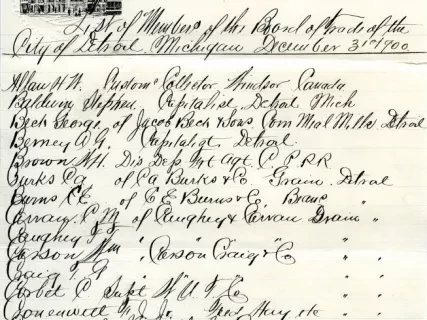 List of Members of the Board of trade of the
City of Detroit Michigan December 31st 1900.
Allan H.N. Custom Collector Windsor Canada
Baldwin Stephen Capitalist, Detroit Mich
Beck George, of Jacob Beck & Sons Corn Meal Mills Detroit
Berney A. G. Capitalist Detroit
Brown W.H. Dis Dep Frt Agt C P RR
Burks Ca of Ca Burks & Co Grain Detroit
Burns C.E. of C E Burns & Co. "
C. M. of Caughey & Grain "
Caughey
Carson Wm " Carson Craig & Co " "
Craig J.
Corbet C. Supt W U T Co " "
J. Jr. Hay etc " "